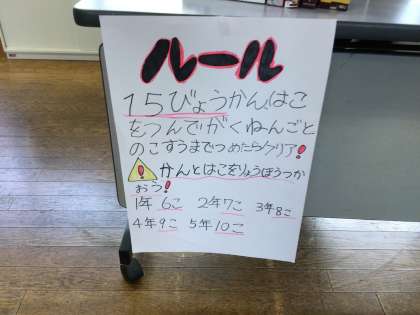 ルール
15びょうかん、はこ
をつんでがくねんごと
のこすうまでつめたらクリア!
! かんとはこをりょうほうつか
おう!
1年 6こ 2年7こ 3年8こ
4年9こ 5年10こ